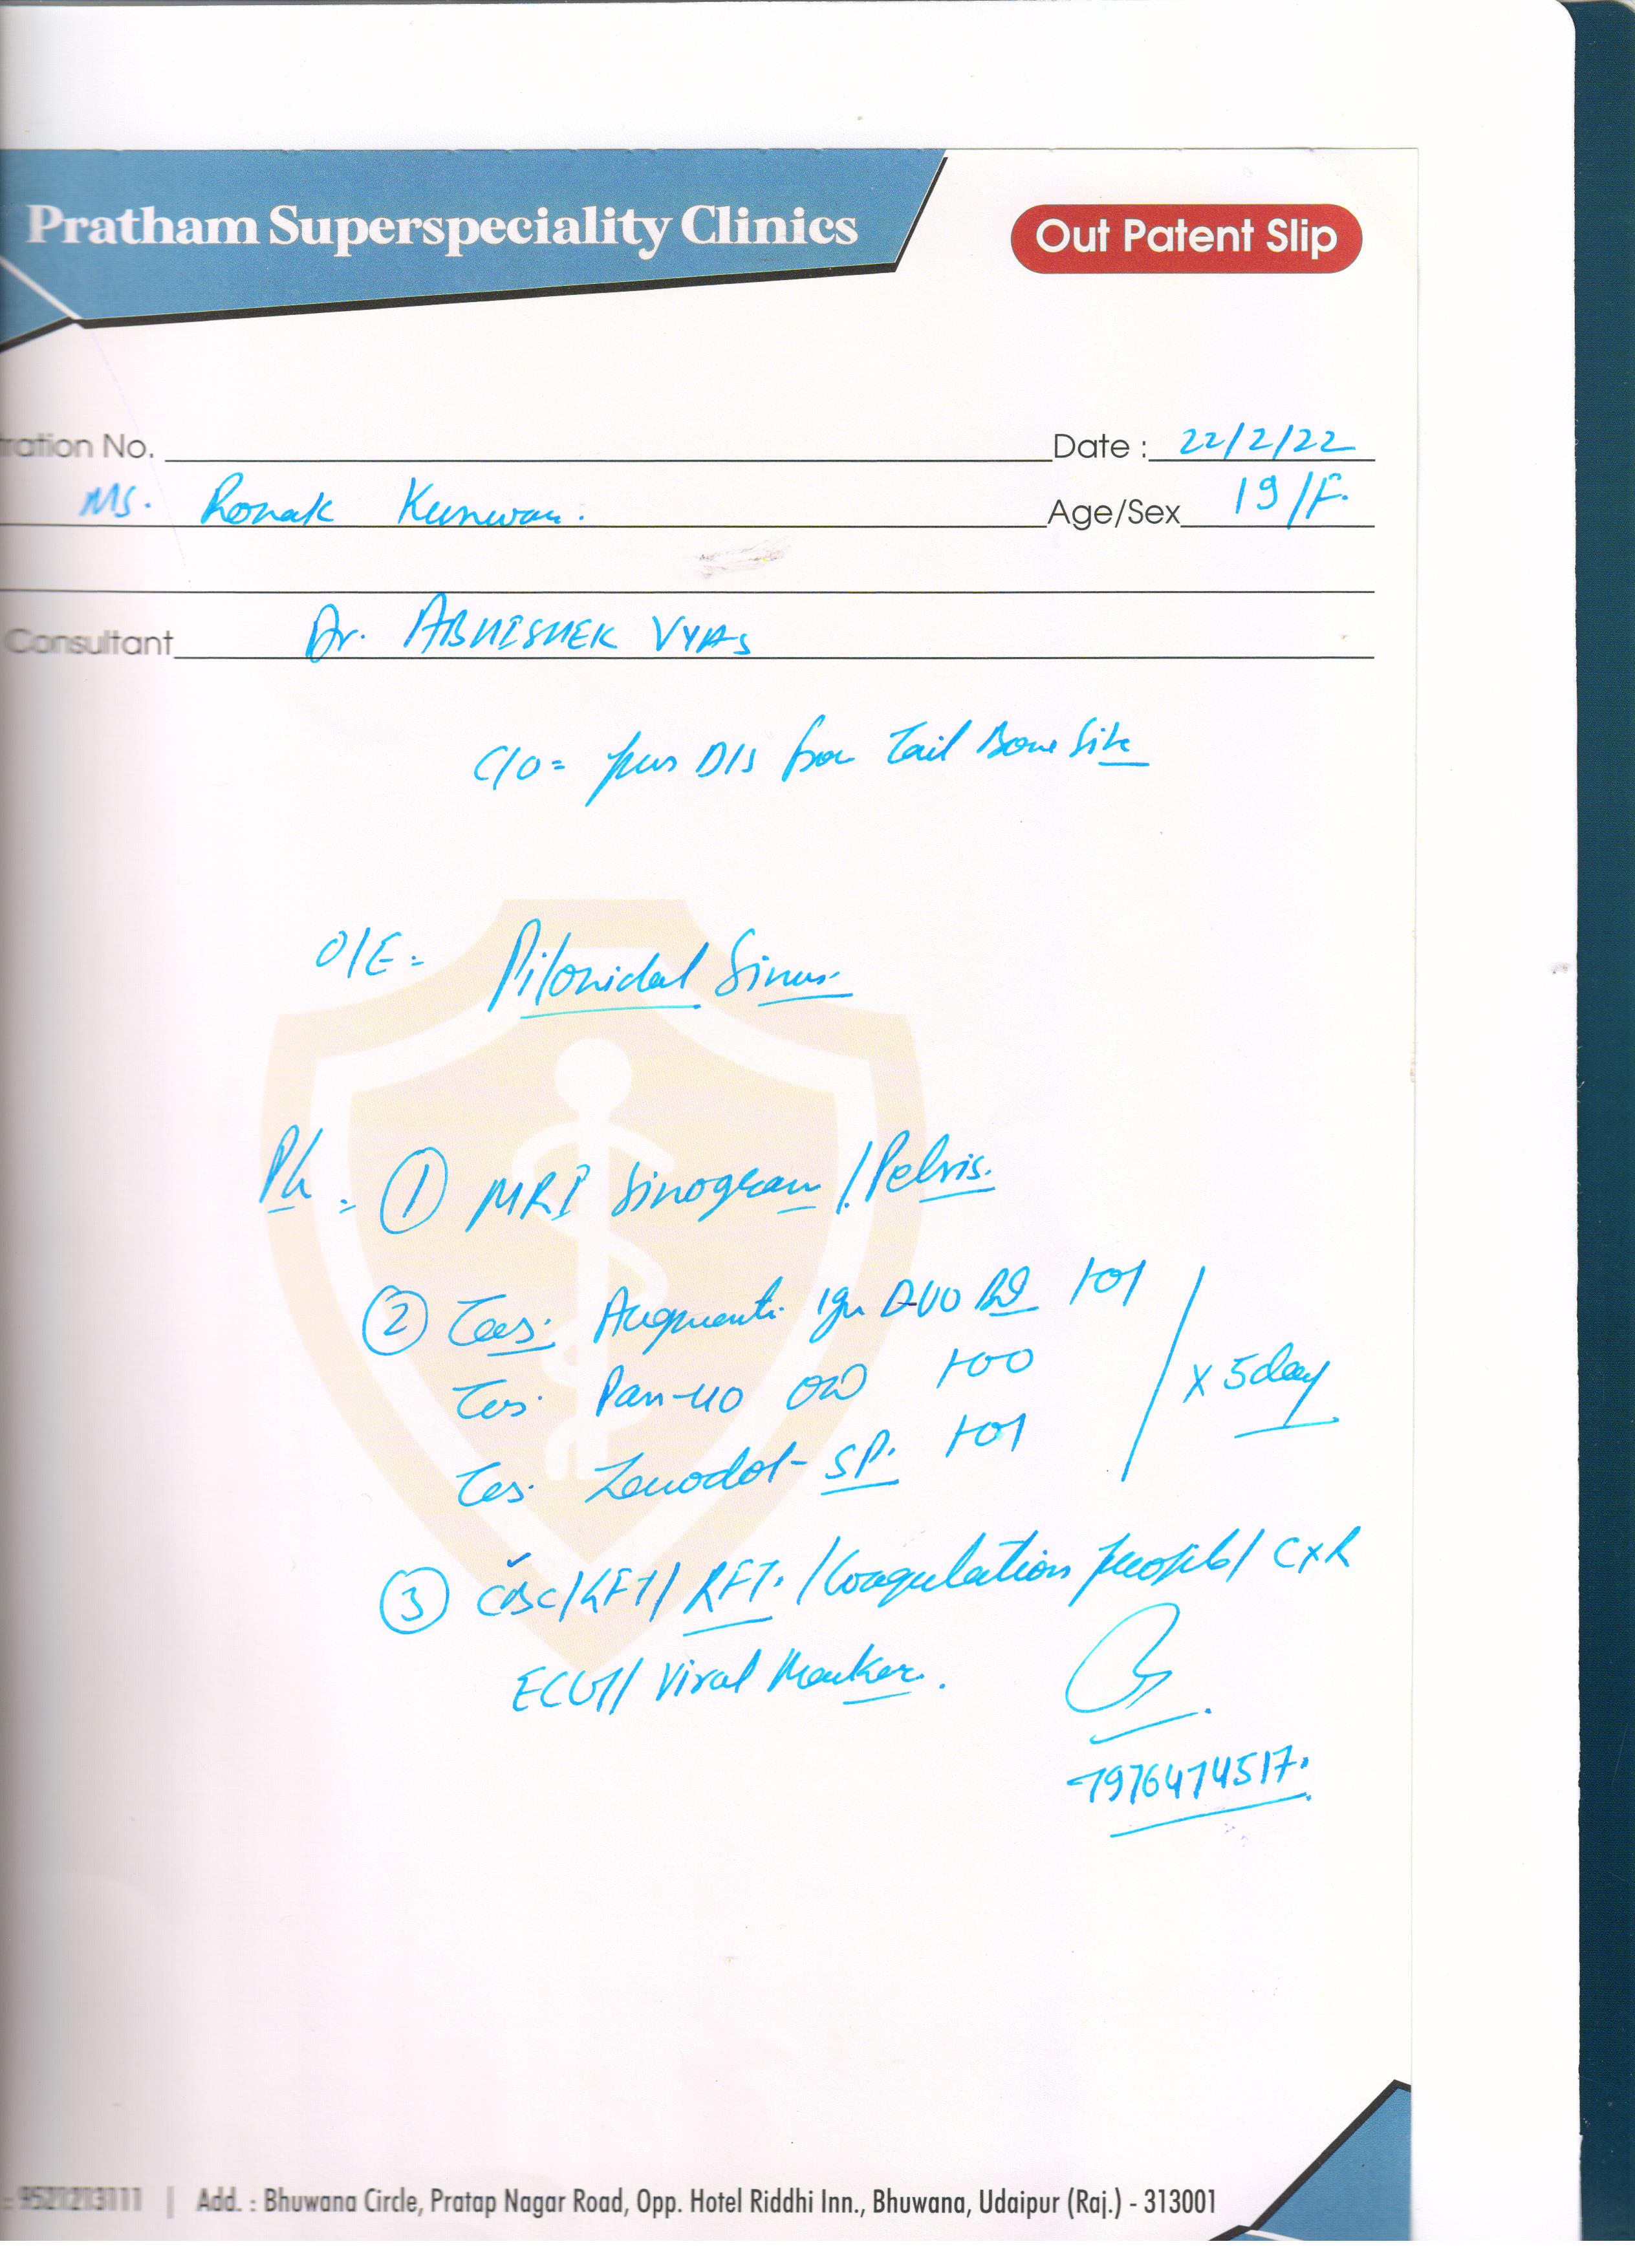 Pratham Superspeciality Clinics
Out Patent Slip
ration No. Date : 22/2/22
Ms. Ronak Kunwar. Age/Sex 19/F.
Consultant Dr. ABHISHEK VYAS
C/O = pus D/s from Tail Bone Site
O/E = Pilonidal Sinus.
= ① MRI Sinogram / Pelvis.
② Tab. Augmentin 1gm DUO BD 101
Tab. Pan-40 OD 100
Tab. Zerodol-SP. 101
x 5day
③ CBC/LFT/RFT. /Coagulation profile/ CXR
ECG// Viral Marker.
7976474517.
9521213111 | Add. : Bhuwana Circle, Pratap Nagar Road, Opp. Hotel Riddhi Inn., Bhuwana, Udaipur (Raj.) - 313001